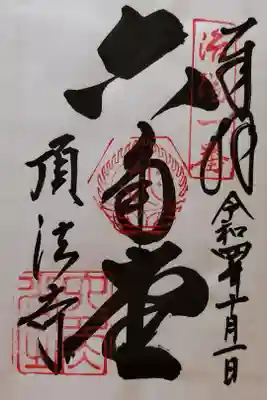 奉拝
令和四年十月一日
洛陽一番
六角堂
頂法寺